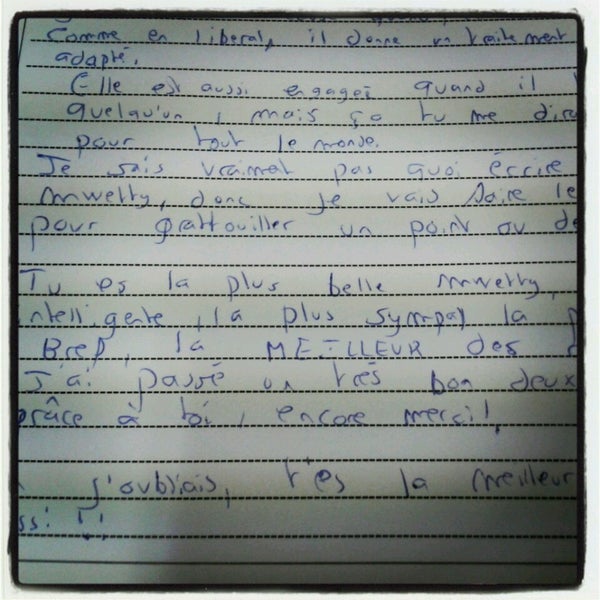 Comme en libéral, il donne un traitement
adapté.
Elle est aussi engagée quand il
quelqu'un, mais ça tu me
pour tout le monde.
Je sais vraimet pas quoi écrire
mwetty, donc je vais faire le
pour grattouiller un point ou
Tu es la plus belle mwetty,
intelligente, la plus sympa, la
Bref, la MEILLEUR des
J'ai passé un très bon deux
grâce à toi, encore merci!
j'oubliais, t'es la meilleur
ssi !!